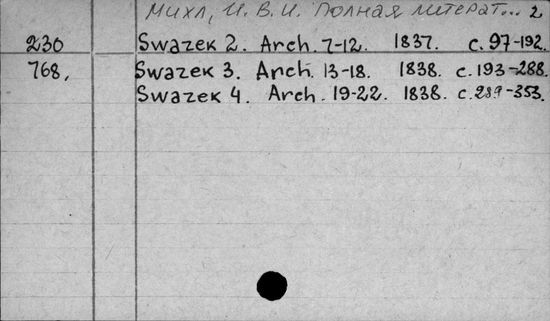 Михл, И. В. И. Полная литерат... 2
230 Swazek 2. Arch. 7-12. 1837. c. 97-192.
768, Swazek 3. Arch. 13-18. 1838. c. 193-288.
Swazek 4. Arch. 19-22. 1838. c. 289-353.